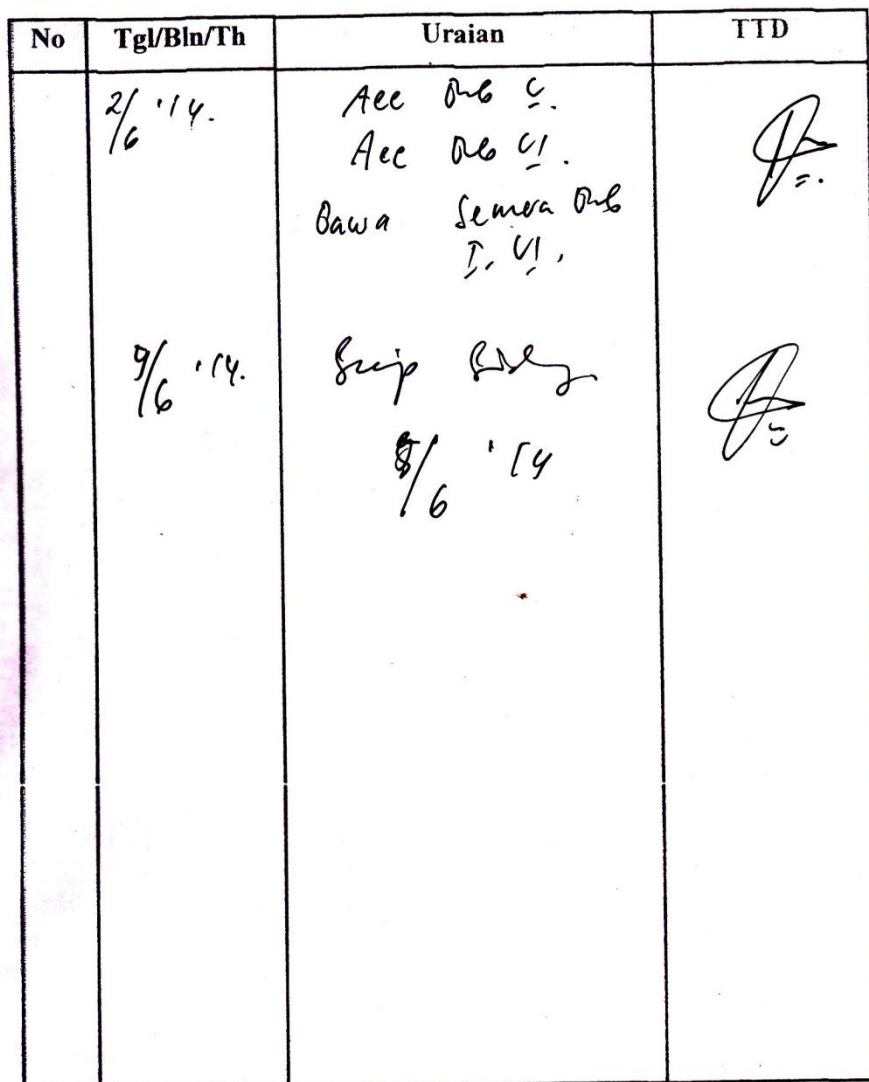 No Tgl/Bln/Th Uraian TTD
2/6 '14. Acc Bab V.
Acc Bab VI.
Bawa Semua Bab
I, VI,
9/6 '14.
8/6 '14